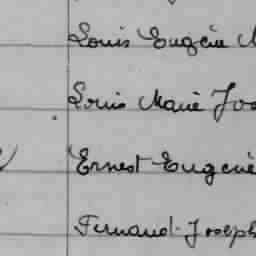 Louis Eugène
Louis Marie
Ernest Eugène
Fernand-Joseph